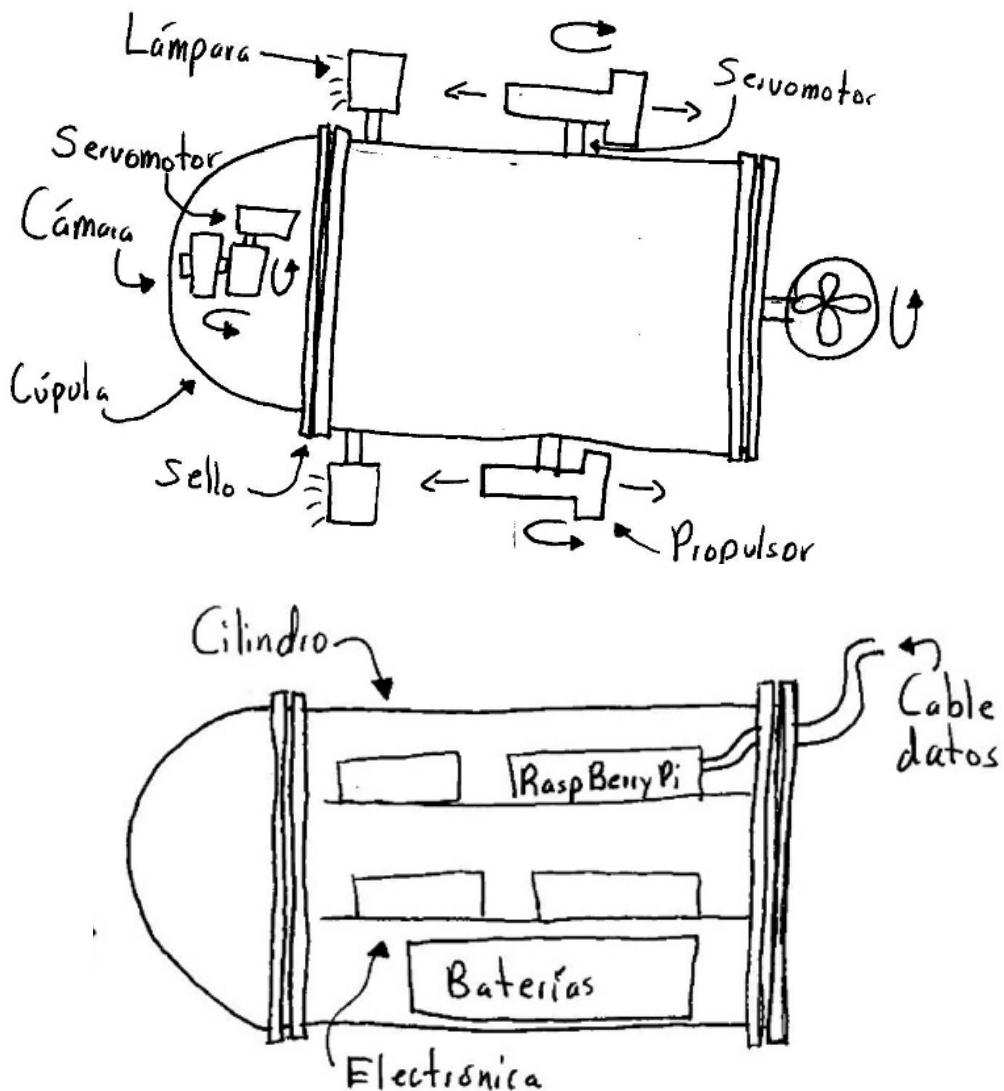 Lámpara
Servomotor
Servomotor
Cámara
Cúpula
Sello
Propulsor
Cilindro
Cable
datos
RaspBerryPi
Baterías
Electrónica